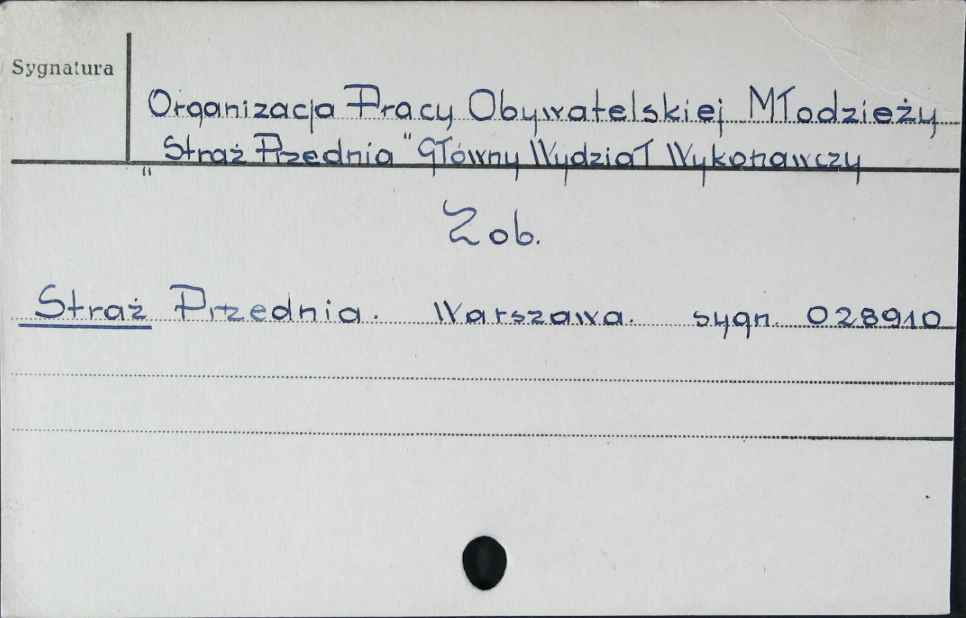 Sygnatura
Organizacja Pracy Obywatelskiej Młodzieży
„Straż Przednia" Główny Wydział Wykonawczy
Zob.
Straż Przednia. Warszawa. sygn. 028910